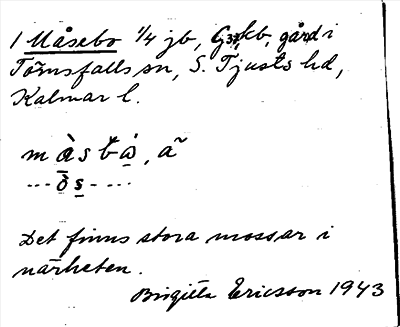 1 Måsebo 1/4 jb, G3, kb, gård i
Törnsfalls sn, S. Tjusts hd,
Kalmar l.
Det finns stora mossar i
närheten.
Birgitta Ericsson 1943